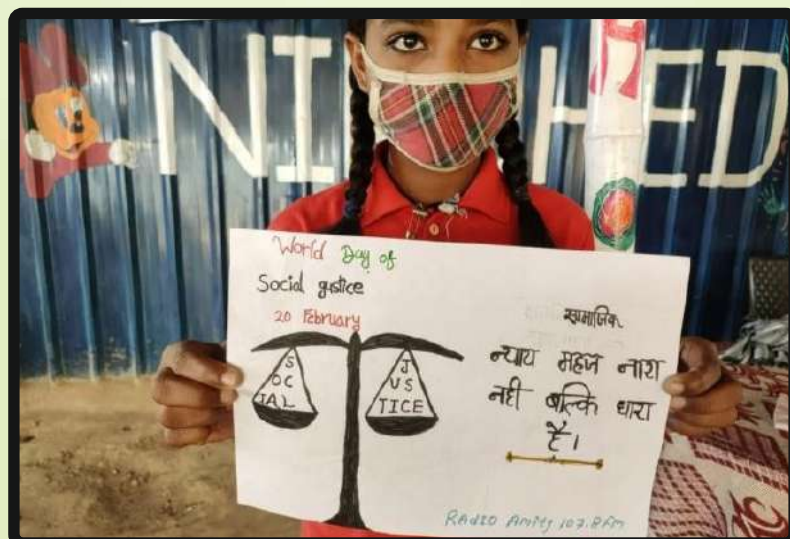 NI HED
World Day of
Social gustice
20 February
S
OC
IAL
J
US
TICE
सामाजिक
न्याय महज नारा
नही बल्कि धारा
है।
RADIO Amity 107.8 fm